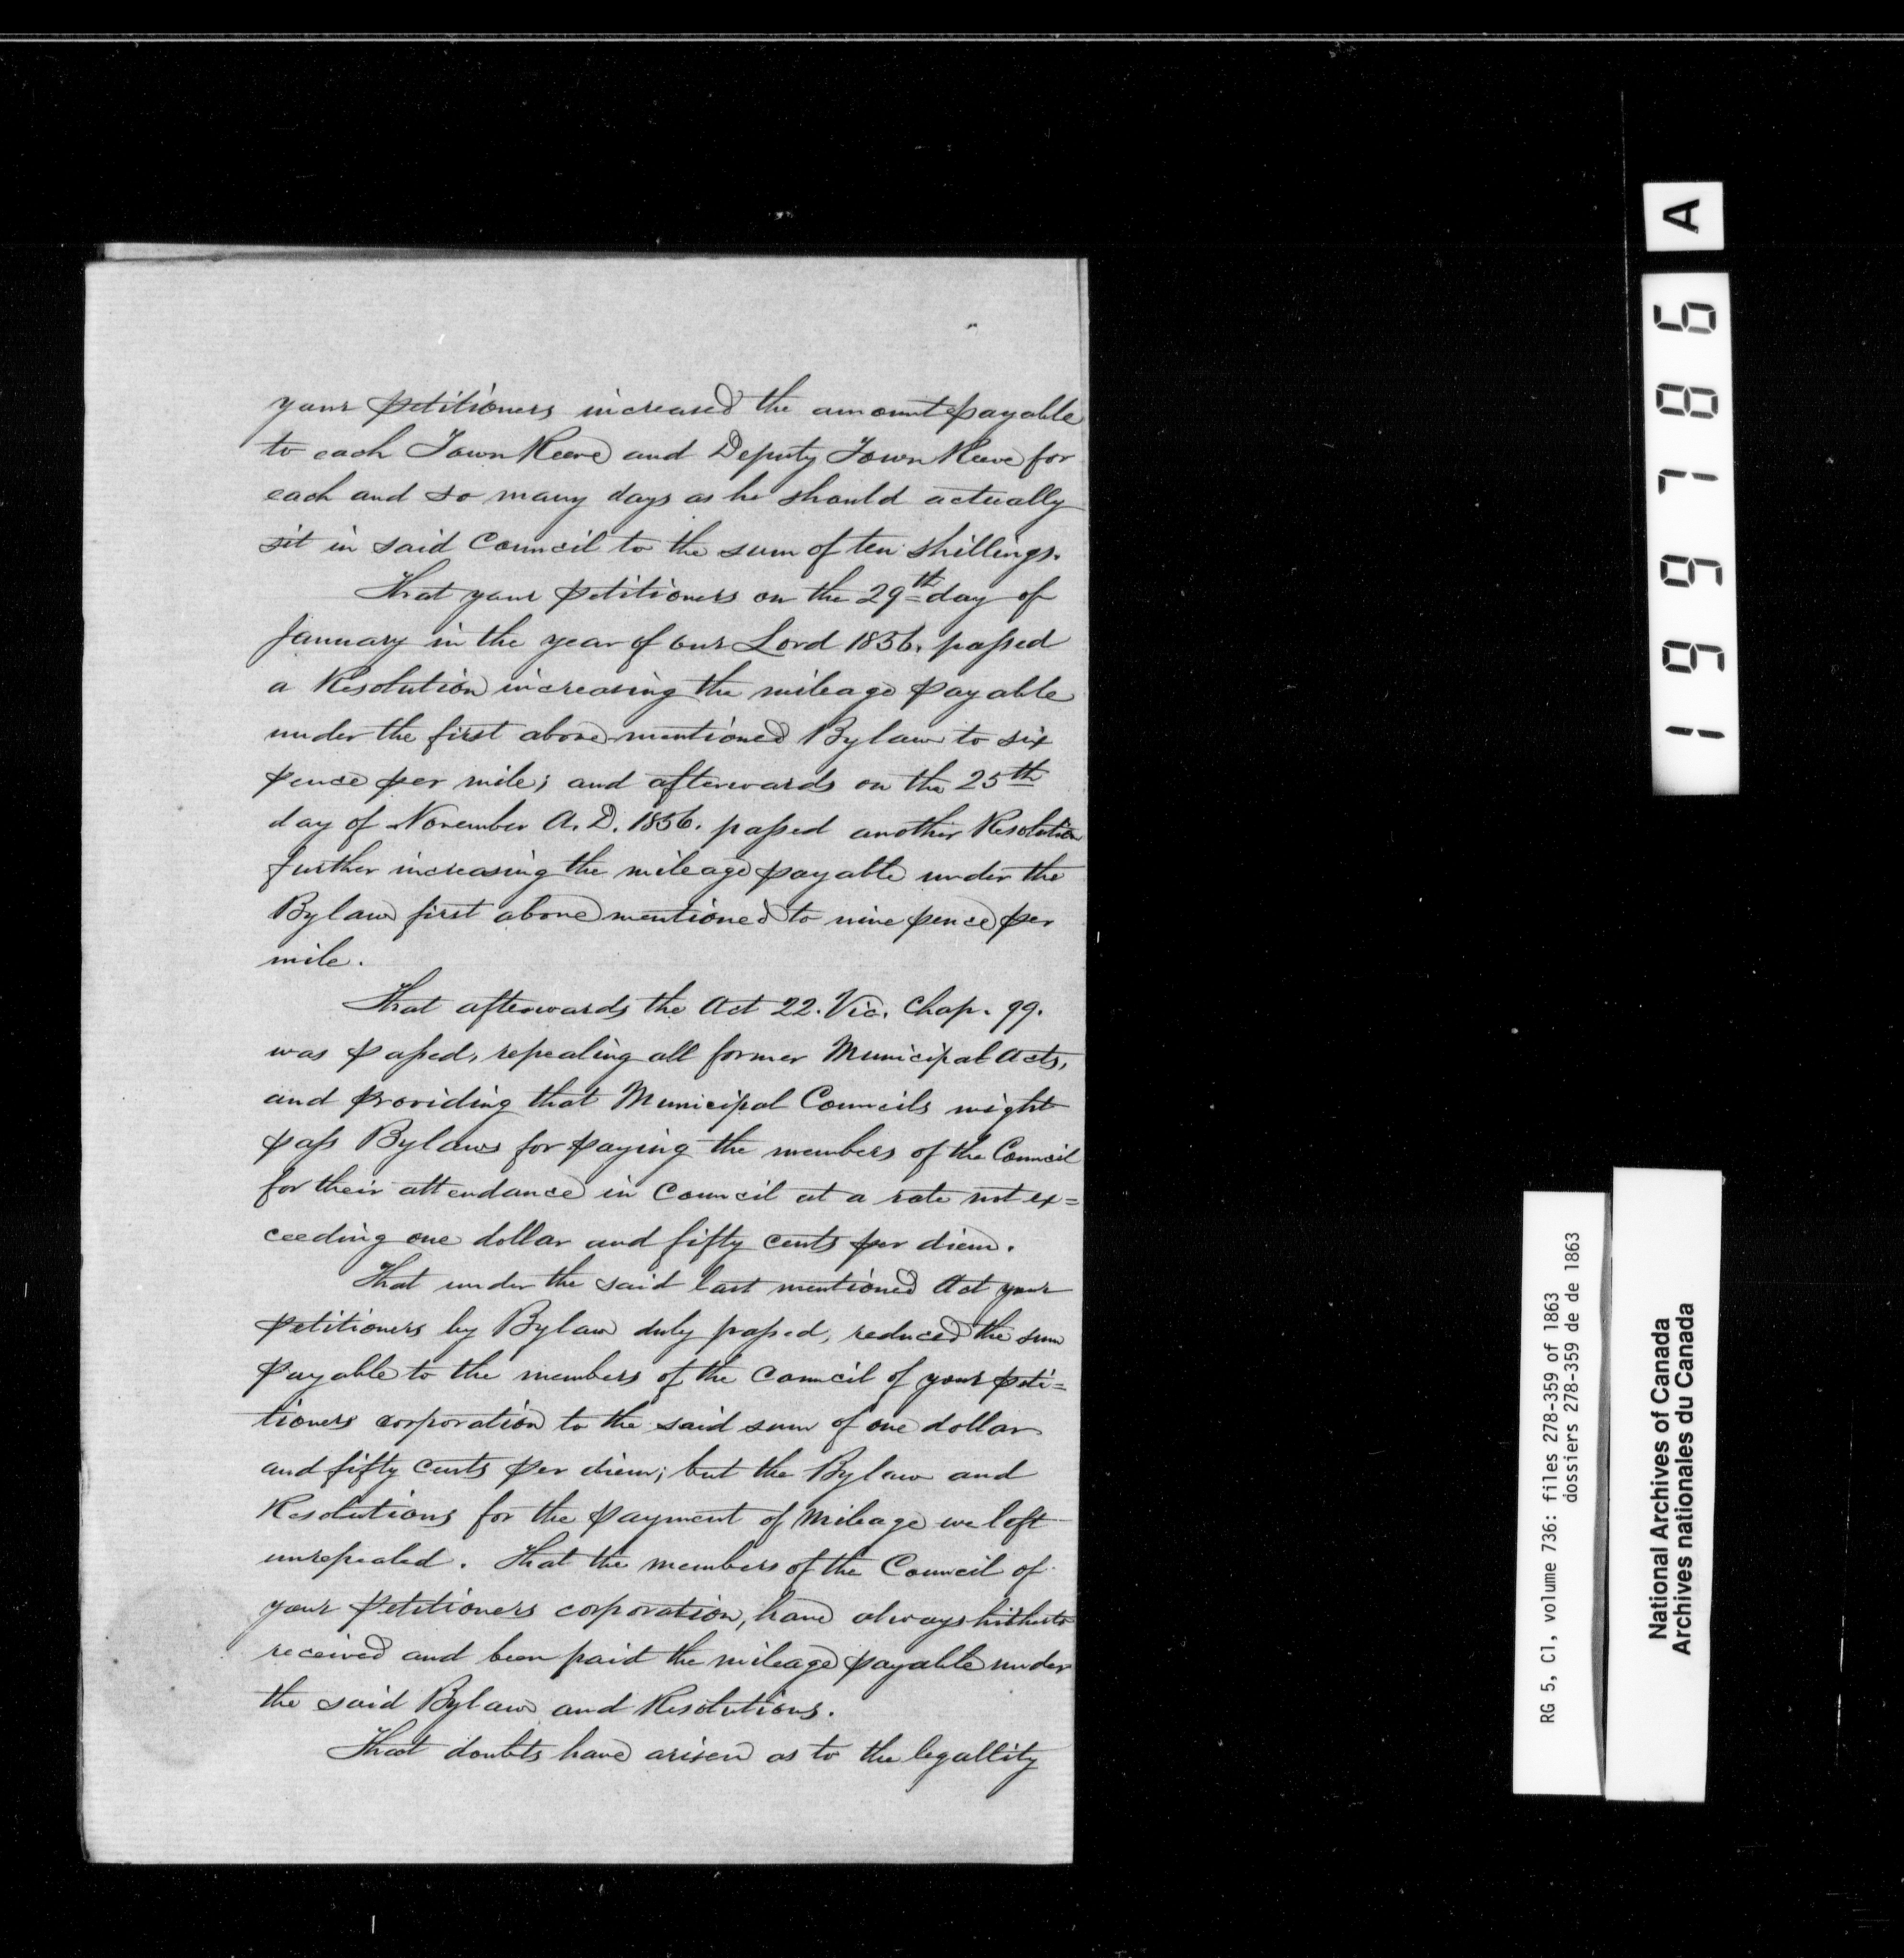 your petitioners increased the amount payable
to each Town Reeve and Deputy Town Reeve for
each and so many days as he should actually
sit in said Council to the sum of ten shillings.
That your petitioners on the 29th day of
January in the year of our Lord 1856. passed
a Resolution increasing the mileage payable
under the first above mentioned Bylaw to six
pence per mile; and afterwards on the 25th
day of November A.D. 1856. passed another Resolution
further increasing the mileage payable under the
Bylaw first above mentioned to nine pence per
mile.
That afterwards the Act 22. Vic. Chap. 99.
was passed, repealing all former Municipal Acts,
and providing that Municipal Councils might
pass Bylaws for paying the members of the Council
for their attendance in Council at a rate not ex=
ceeding one dollar and fifty cents per diem.
That under the said last mentioned Act your
petitioners by Bylaw duly passed, reduced the sum
payable to the members of the Council of your peti=
tioners corporation to the said sum of one dollar
and fifty cents per diem; but the Bylaw and
Resolutions for the payment of Mileage we left
unrepealed. That the members of the Council of
your petitioners corporation, have always hitherto
received and been paid the mileage payable under
the said Bylaw and Resolutions.
That doubts have arisen as to the legallity
199786 A
RG 5, C1, volume 736: files 278-359 of 1863
dossiers 278-359 de de 1863
National Archives of Canada
Archives nationales du Canada